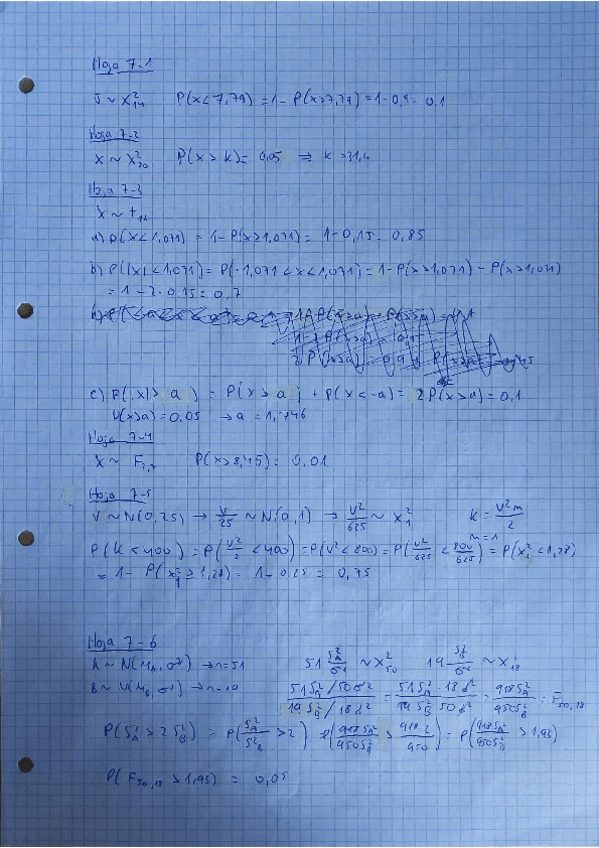 Hoja 7-1
J ~ X²₁₄ P(x<7,79) = 1 - P(x>7,79) = 1 - 0,9 = 0,1
Hoja 7-2
X ~ X² P(x > k) = 0,05 ⇒ k = 31,4
Hoja 7-3
X ~ t₁₄
a) P(x<1,071) = 1 - P(x>1,071) = 1 - 0,15 = 0,85
b) P(|x|<1,071) = P(-1,071 < x < 1,071) = 1 - P(x>1,071) - P(x>1,071)
= 1 - 2 · 0,15 = 0,7
c) P(|x| > a) = P(x > a) + P(x < -a) = 2P(x>a) = 0,1
P(x>a) = 0,05 → a =
Hoja 7-4
X ~ F P(x>8,45) = 0,01
Hoja 7-5
V ~ N(0,25) → V/25 ~ N(0,1) → V²/625 ~ X²₁ k = V²m/2
m=1
P(k < 400) = P(V²/2 < 400) = P(V² < 800) = P(V²/625 < 800/625) = P(X²₁ < 1,28)
= 1 - P(X²₁ ≥ 1,28) = 1 - 0,25 = 0,75
Hoja 7-6
A ~ N(M_A, σ²) → n=51 51 S²_A/σ² ~ X²₅₀ 19 S²_B/σ² ~ X²₁₈
B ~ N(M_B, σ²) → n=19 (51S²_A/50σ²)/(19S²_B/18σ²) = (51S²_A · 18σ²)/(19S²_B 50σ²) = 918S²_A/950S²_B = F₅₀,₁₈
P(S²_A > 2S²_B) = P(S²_A/S²_B > 2) P(918S²_A/950S²_B > 918·2/950) = P(918S²_A/950S²_B > 1,93)
P(F₅₀,₁₈ > 1,93) = 0,05